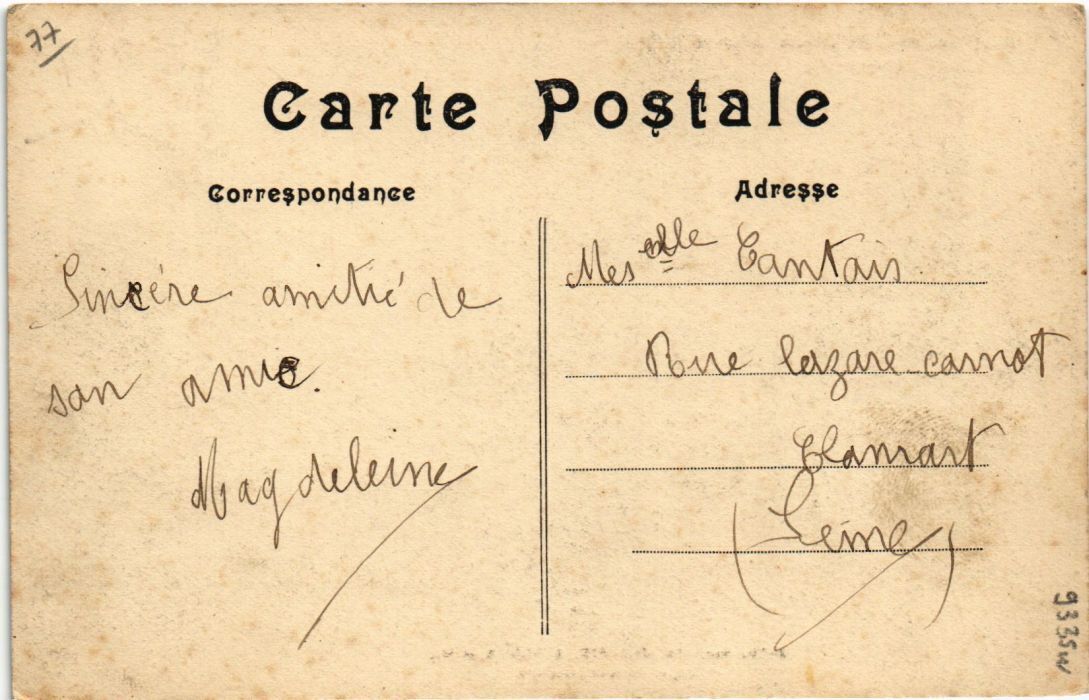 77
Carte Postale
Correspondance
Adresse
Sincére amitié de
son amie.
Magdeleine
Meselle Tantais
Rue lazare-carnot
Clamart
(Seine)
9335w